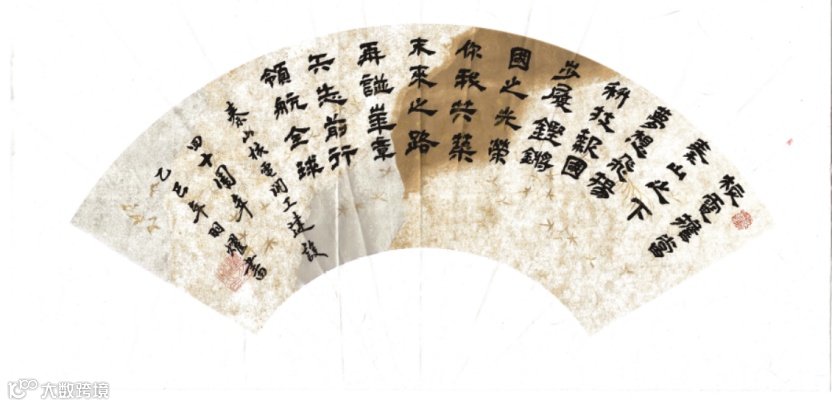 核電
秦山之下
夢想飛揚
科技報國
步履鏗鏘
國之光榮
你我共築
未來之路
再譜華章
矢志前行
領航全球
秦山核電開工建設
四十周年
乙巳年羽耀書
大数跨境